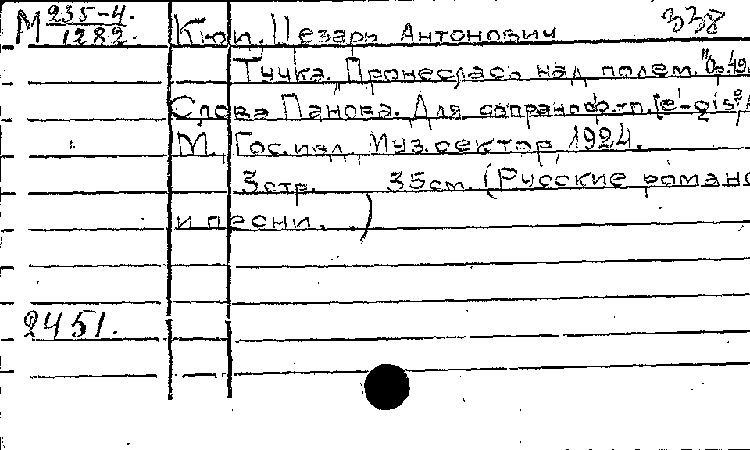 М 235-4. / 1282. Кюи, Цезарь Антонович 338
Тучка. "Пронеслась над полем." Op.49.
Слова Панова. Для сопрано с ф-п. [e'-gis²]
М., Гос.изд., Муз.сектор, 1924.
3 стр. 35 см. (Русские романс
и песни. .)
2451.